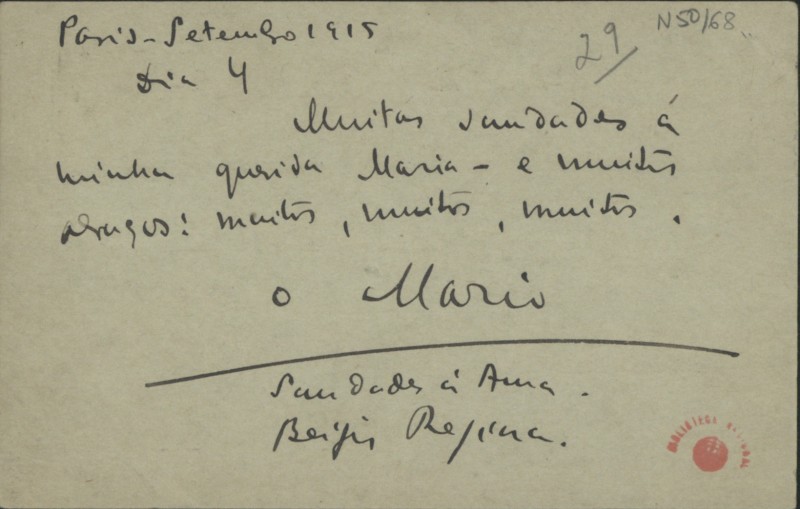 Paris - Setembro 1915
29
N50/68
Dia 4
Muitas saudades á
minha querida Maria - e muitos
abraços: muitos, muitos, muitos.
o Mario
Saudades á Ama.
Beijos Regina.
BIBLIOTECA NACIONAL